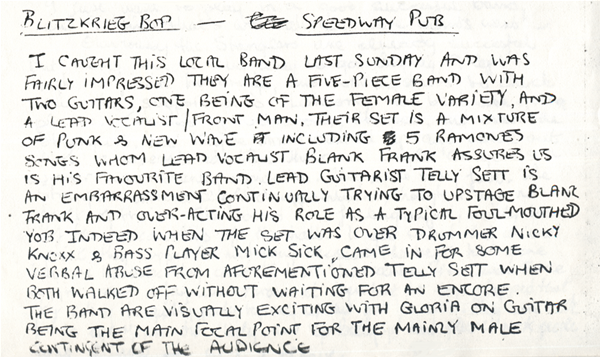 BLITZKRIEG BOP — SPEEDWAY PUB
I CAUGHT THIS LOCAL BAND LAST SUNDAY AND WAS
FAIRLY IMPRESSED THEY ARE A FIVE-PIECE BAND WITH
TWO GUITARS, ONE BEING OF THE FEMALE VARIETY, AND
A LEAD VOCALIST/FRONT MAN, THEIR SET IS A MIXTURE
OF PUNK & NEW WAVE INCLUDING 5 RAMONES
SONGS WHOM LEAD VOCALIST BLANK FRANK ASSURES US
IS HIS FAVOURITE BAND. LEAD GUITARIST TELLY SETT IS
AN EMBARRASSMENT CONTINUALLY TRYING TO UPSTAGE BLANK
FRANK AND OVER-ACTING HIS ROLE AS A TYPICAL FOUL-MOUTHED
YOB. INDEED WHEN THE SET WAS OVER DRUMMER NICKY
KNOXX & BASS PLAYER MICK SICK, CAME IN FOR SOME
VERBAL ABUSE FROM AFOREMENTIONED TELLY SETT WHEN
BOTH WALKED OFF WITHOUT WAITING FOR AN ENCORE.
THE BAND ARE VISUALLY EXCITING WITH GLORIA ON GUITAR
BEING THE MAIN FOCAL POINT FOR THE MAINLY MALE
CONTINGENT OF THE AUDIENCE